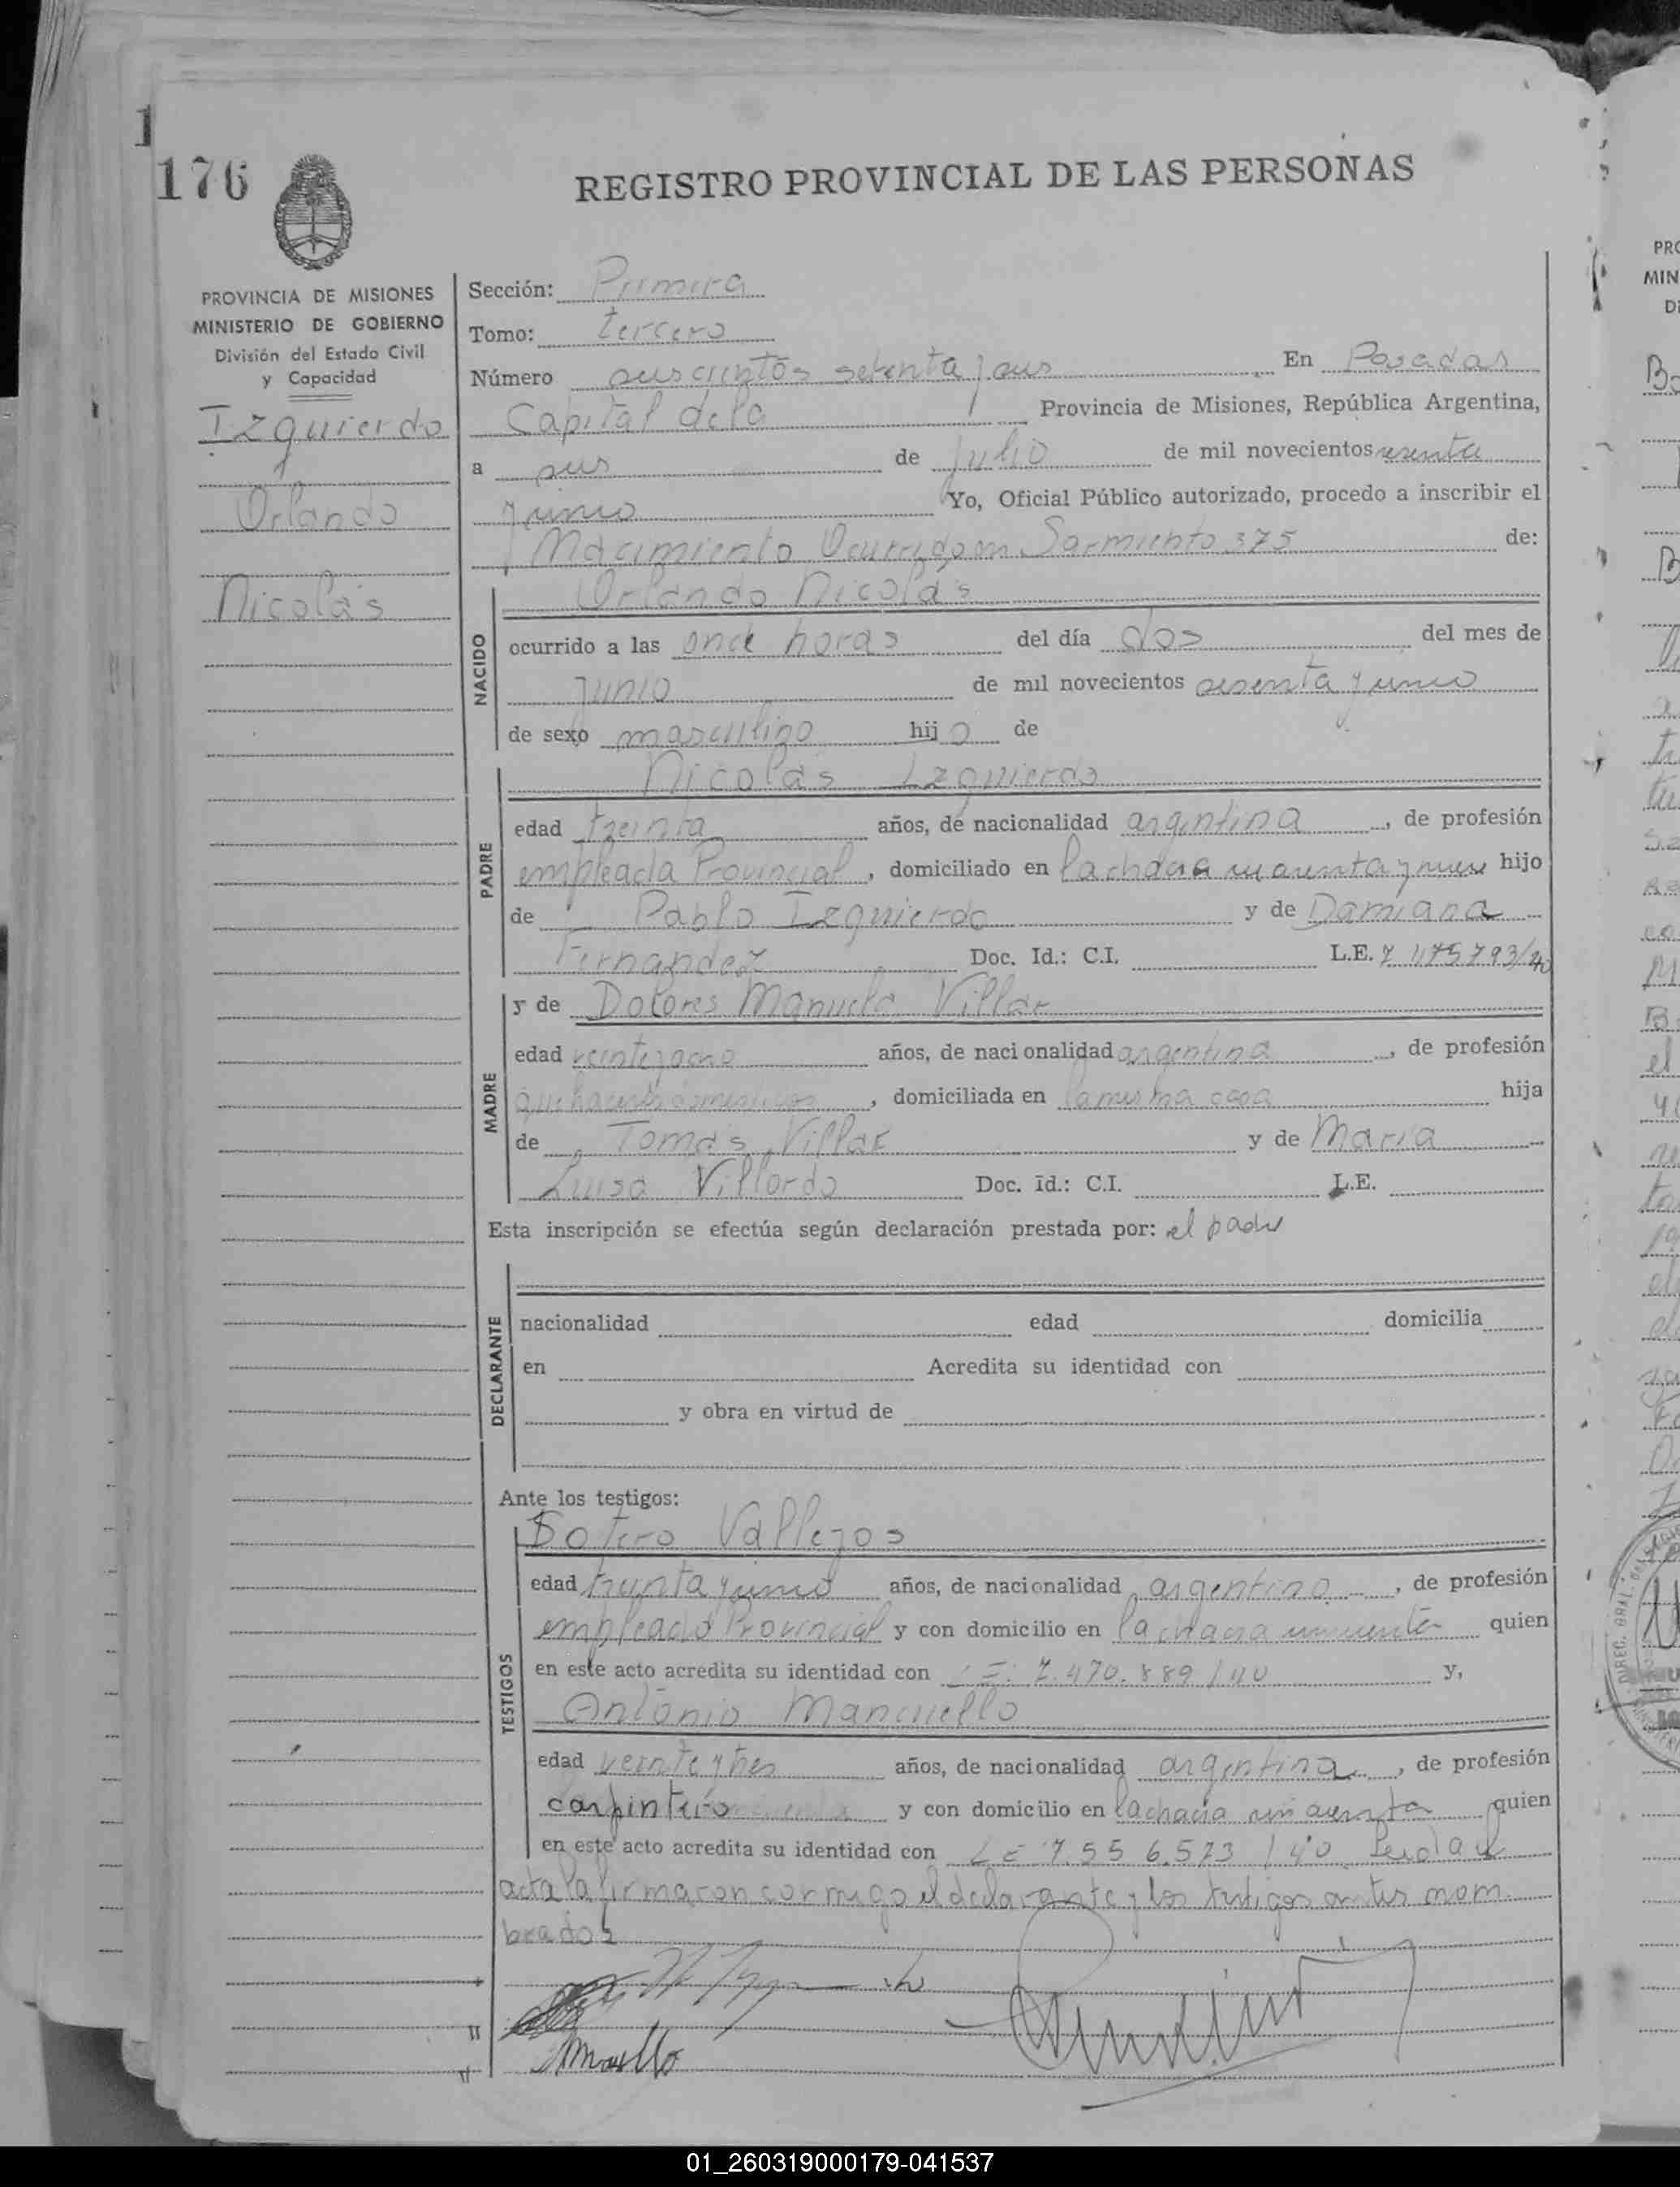 1
176
REGISTRO PROVINCIAL DE LAS PERSONAS
PROVINCIA DE MISIONES
MINISTERIO DE GOBIERNO
División del Estado Civil
y Capacidad
Izquierdo
Orlando
Nicolás
Sección: Primera
Tomo: tercero
Número seiscientos setenta y seis En Posadas
Capital de la Provincia de Misiones, República Argentina,
a seis de julio de mil novecientos sesenta
y uno Yo, Oficial Público autorizado, procedo a inscribir el
Nacimiento Ocurrido en Sarmiento 375 de:
NACIDO
Orlando Nicolás
ocurrido a las once horas del día dos del mes de
junio de mil novecientos sesenta y uno
de sexo masculino hijo de
PADRE
Nicolás Izquierdo
edad treinta años, de nacionalidad argentina, de profesión
empleada Provincial, domiciliado en la chacra cuarenta y nueve hijo
de Pablo Izquierdo y de Damiana
Fernandez Doc. Id.: C.I. L.E. 7.475.793/40
MADRE
y de Dolores Manuela Villar
edad veinte y ocho años, de nacionalidad argentina, de profesión
quehaceres domesticos, domiciliada en la misma casa hija
de Tomás Villar y de Maria
Luisa Villordo Doc. Id.: C.I. L.E.
Esta inscripción se efectúa según declaración prestada por: el padre
DECLARANTE
nacionalidad edad domicilia
en Acredita su identidad con
y obra en virtud de
Ante los testigos:
TESTIGOS
Sotero Vallejos
edad treinta y uno años, de nacionalidad argentina, de profesión
empleado Provincial y con domicilio en la chacra quien
en este acto acredita su identidad con L E: 7.470.889/40 y,
Antonio Mancuello
edad veinte y tres años, de nacionalidad argentina, de profesión
carpintero y con domicilio en la chacra quien
en este acto acredita su identidad con L E 7.556.573/40 Leida el
acta la firmaron conmigo el declarante y los testigos antes nom
brados
01_260319000179-041537